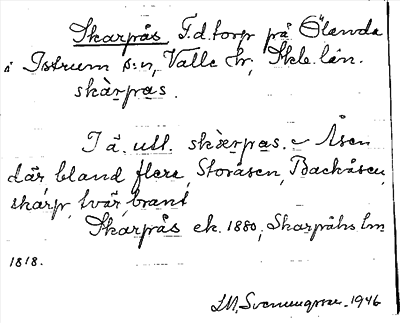 Skarpås F.d. torp på Ölanda
i Istrum s:n, Valle hd, Skb. län.
skàrpas.
I ä. utt. skàrpas. Åsen
där bland flera, Storåsen, Backåsen,
skarp, tvär, brant
Skarpås ek. 1880, Skarpåhs lm
1818.
LM. Svenungsson. 1946